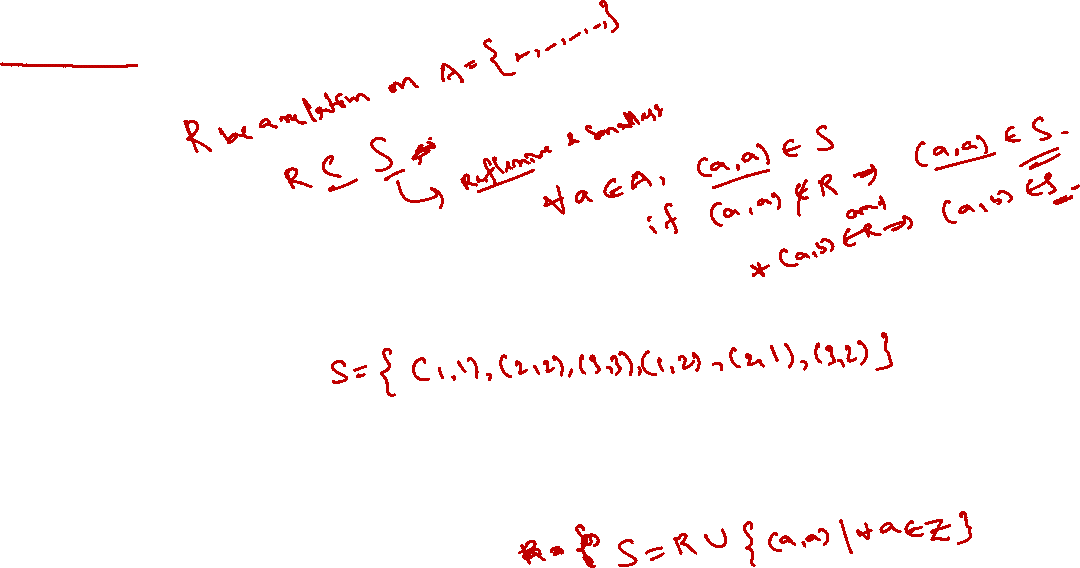 R be a relation on A = {.,.,.,.,.,}
R ⊆ S → Reflexive & smallest
∀ a ∈ A, (a,a) ∈ S
if (a,a) ∉ R ⇒ (a,a) ∈ S.
and
* (a,b) ∈ R ⇒ (a,b) ∈ S.
S = { (1,1), (2,2), (3,3), (1,2), (2,1), (3,2) }
S = R ∪ { (a,a) | ∀ a ∈ Z }